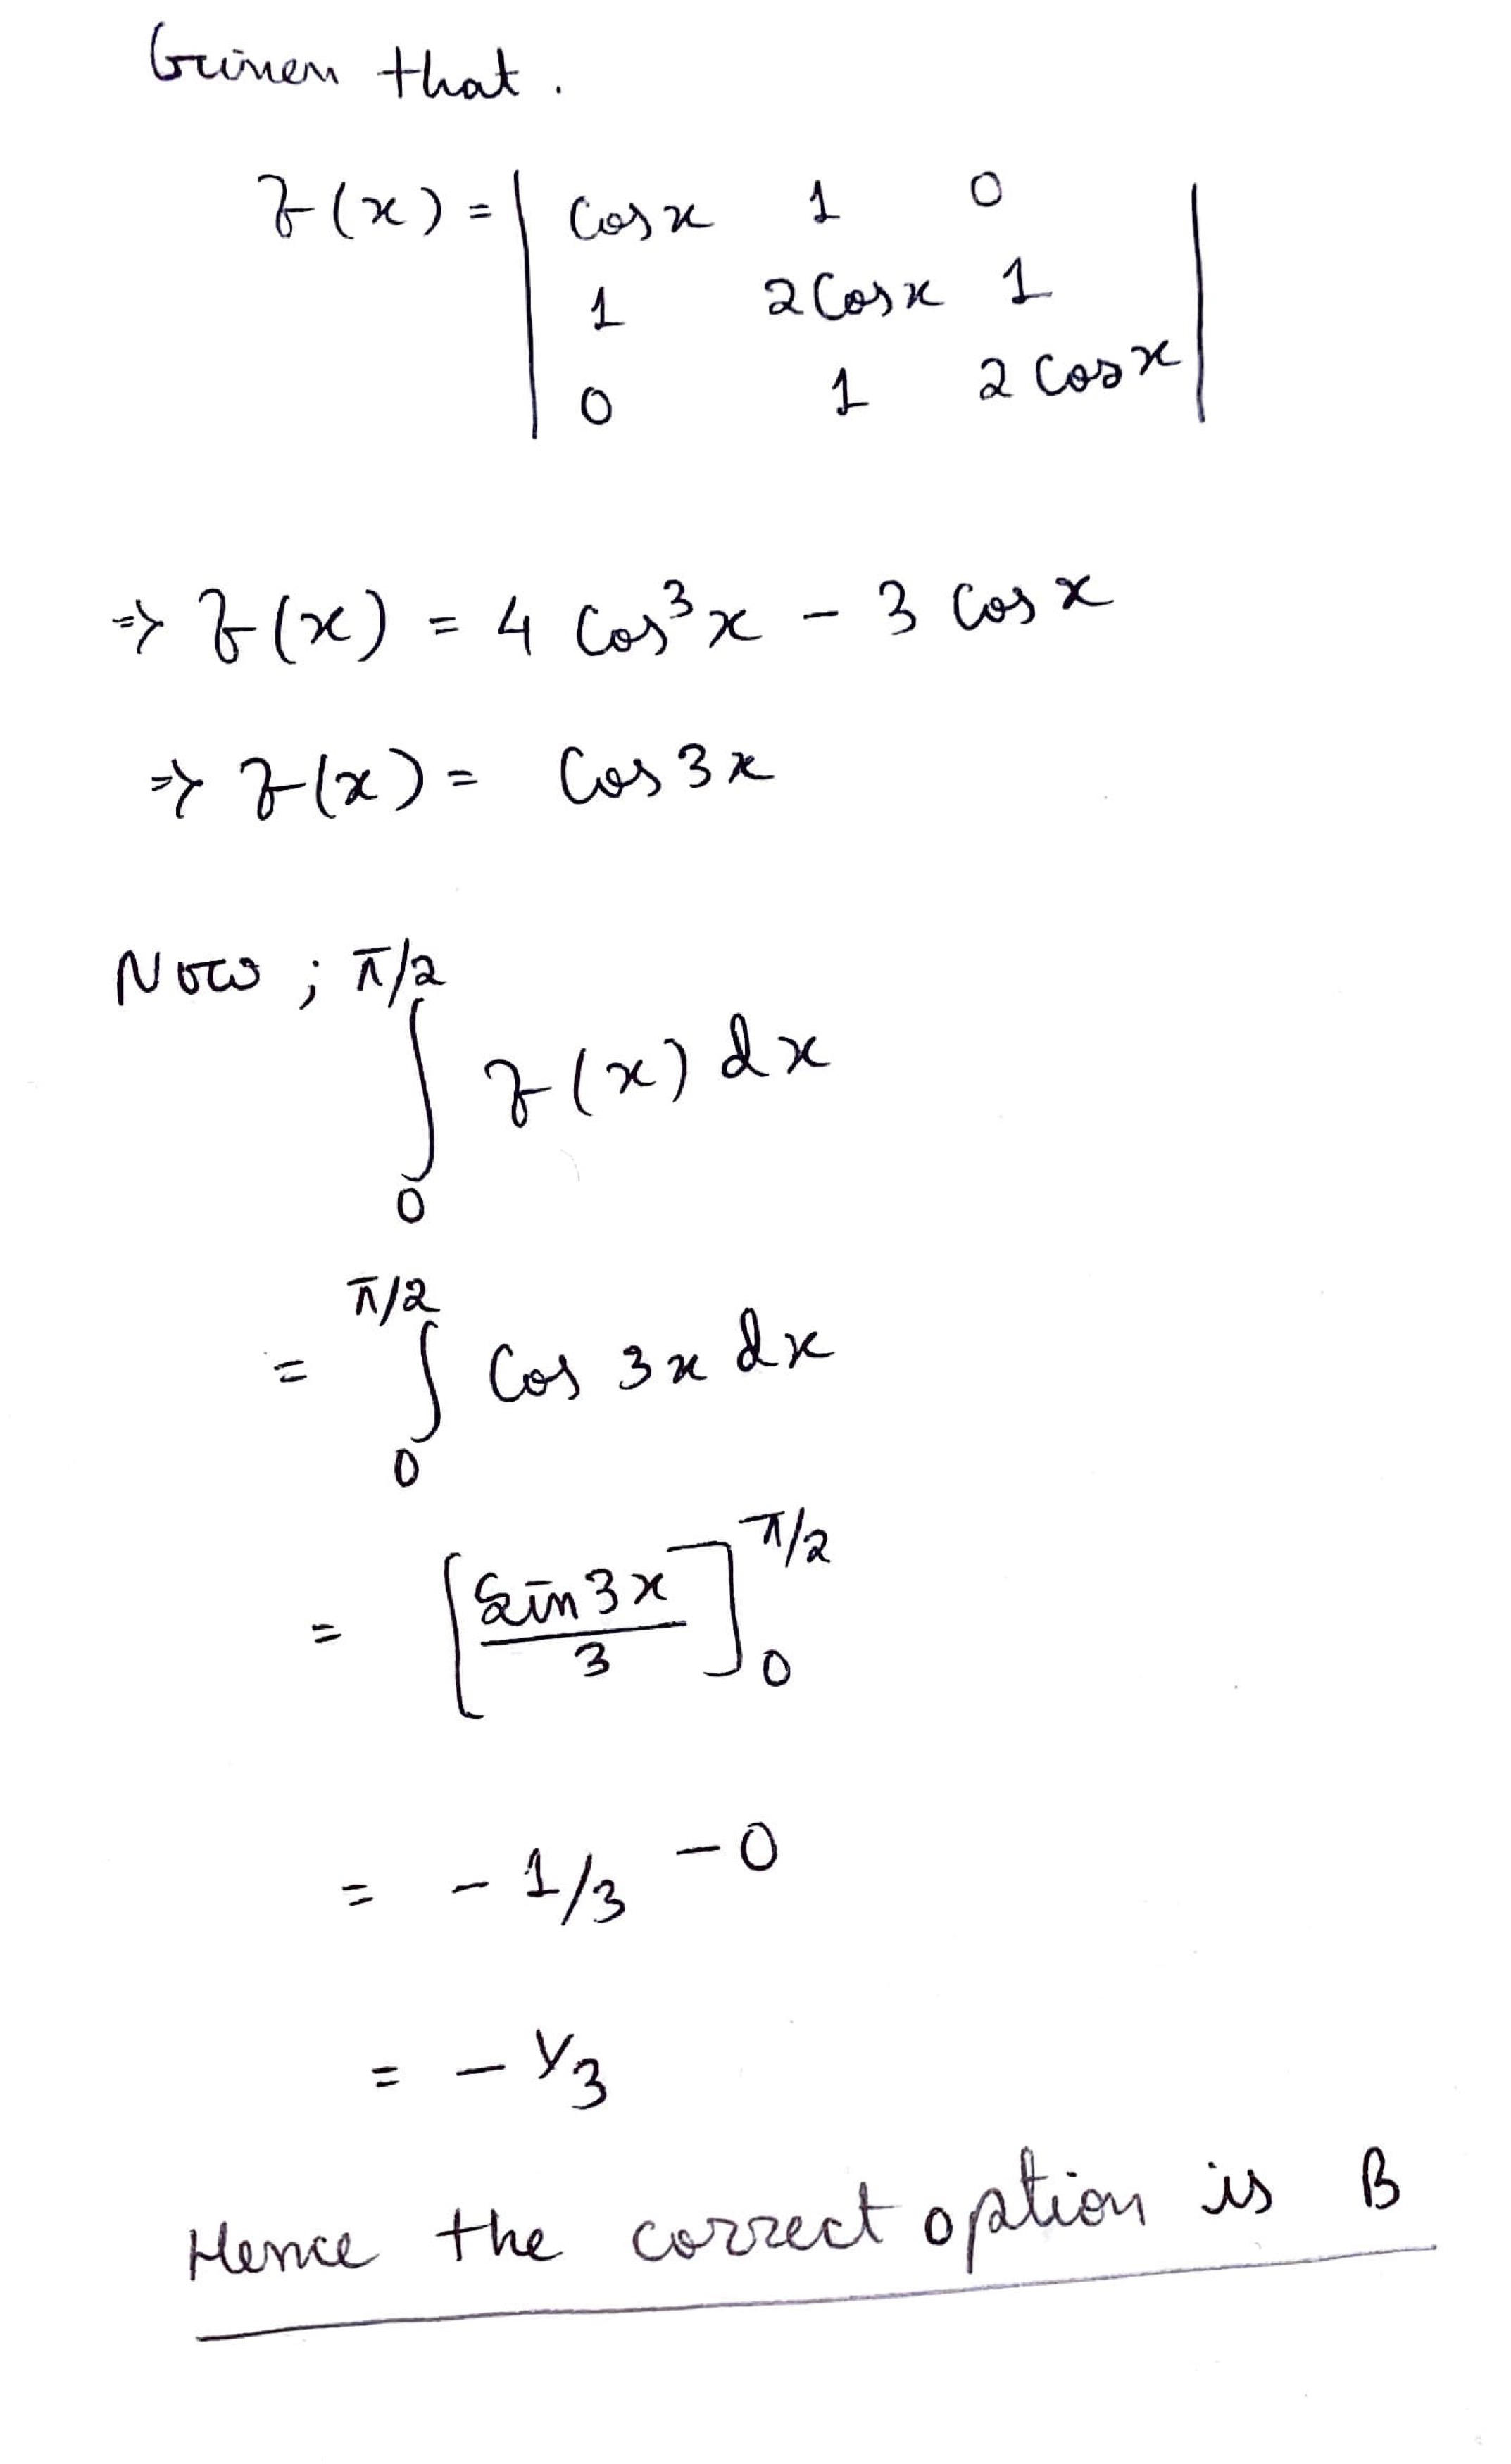 Given that.
f(x) = | cosx 1 0 |
| 1 2cosx 1 |
| 0 1 2cosx |
⇒ f(x) = 4 cos³x - 3 cosx
⇒ f(x) = cos3x
Now ; ∫₀^{π/2} f(x) dx
= ∫₀^{π/2} cos 3x dx
= [sin3x / 3]₀^{π/2}
= - 1/3 - 0
= - 1/3
Hence the correct option is B